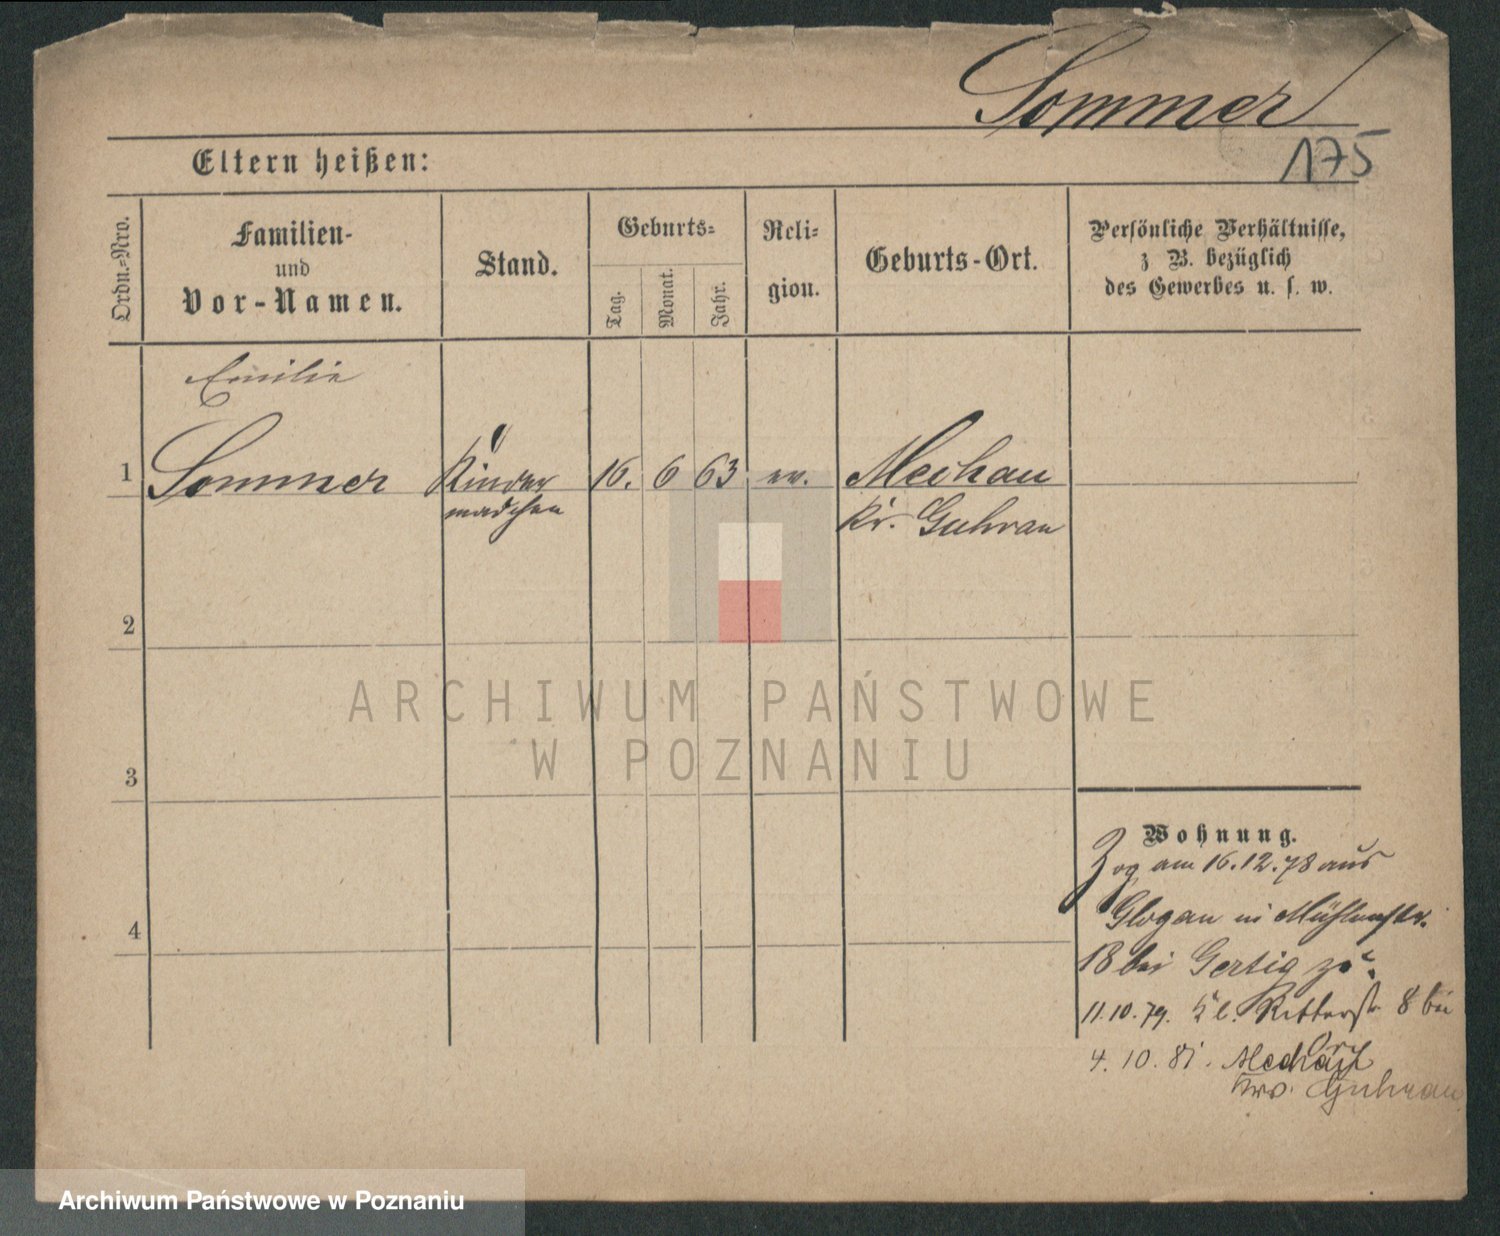 Sommer
175
Eltern heißen:
Ordn.-Nro.
Familien-
und
Vor-Namen.
Stand.
Geburts-
Tag.
Monat.
Jahr.
Reli-
gion.
Geburts-Ort.
Persönliche Verhältnisse,
z B. bezüglich
des Gewerbes u. s. w.
Emilie
1 Sommer Kinder 16. 6 63 ev. Mechau
mädchen Kr. Guhrau
2
3
4
ARCHIWUM PAŃSTWOWE
W POZNANIU
Wohnung.
Zog am 16.12.78 aus
Glogau in Mühlenstr.
18 bei Gertig zu.
11.10.79. Kl. Ritterstr. 8 bei
4.10.81. Mechau
Guhrau
Archiwum Państwowe w Poznaniu